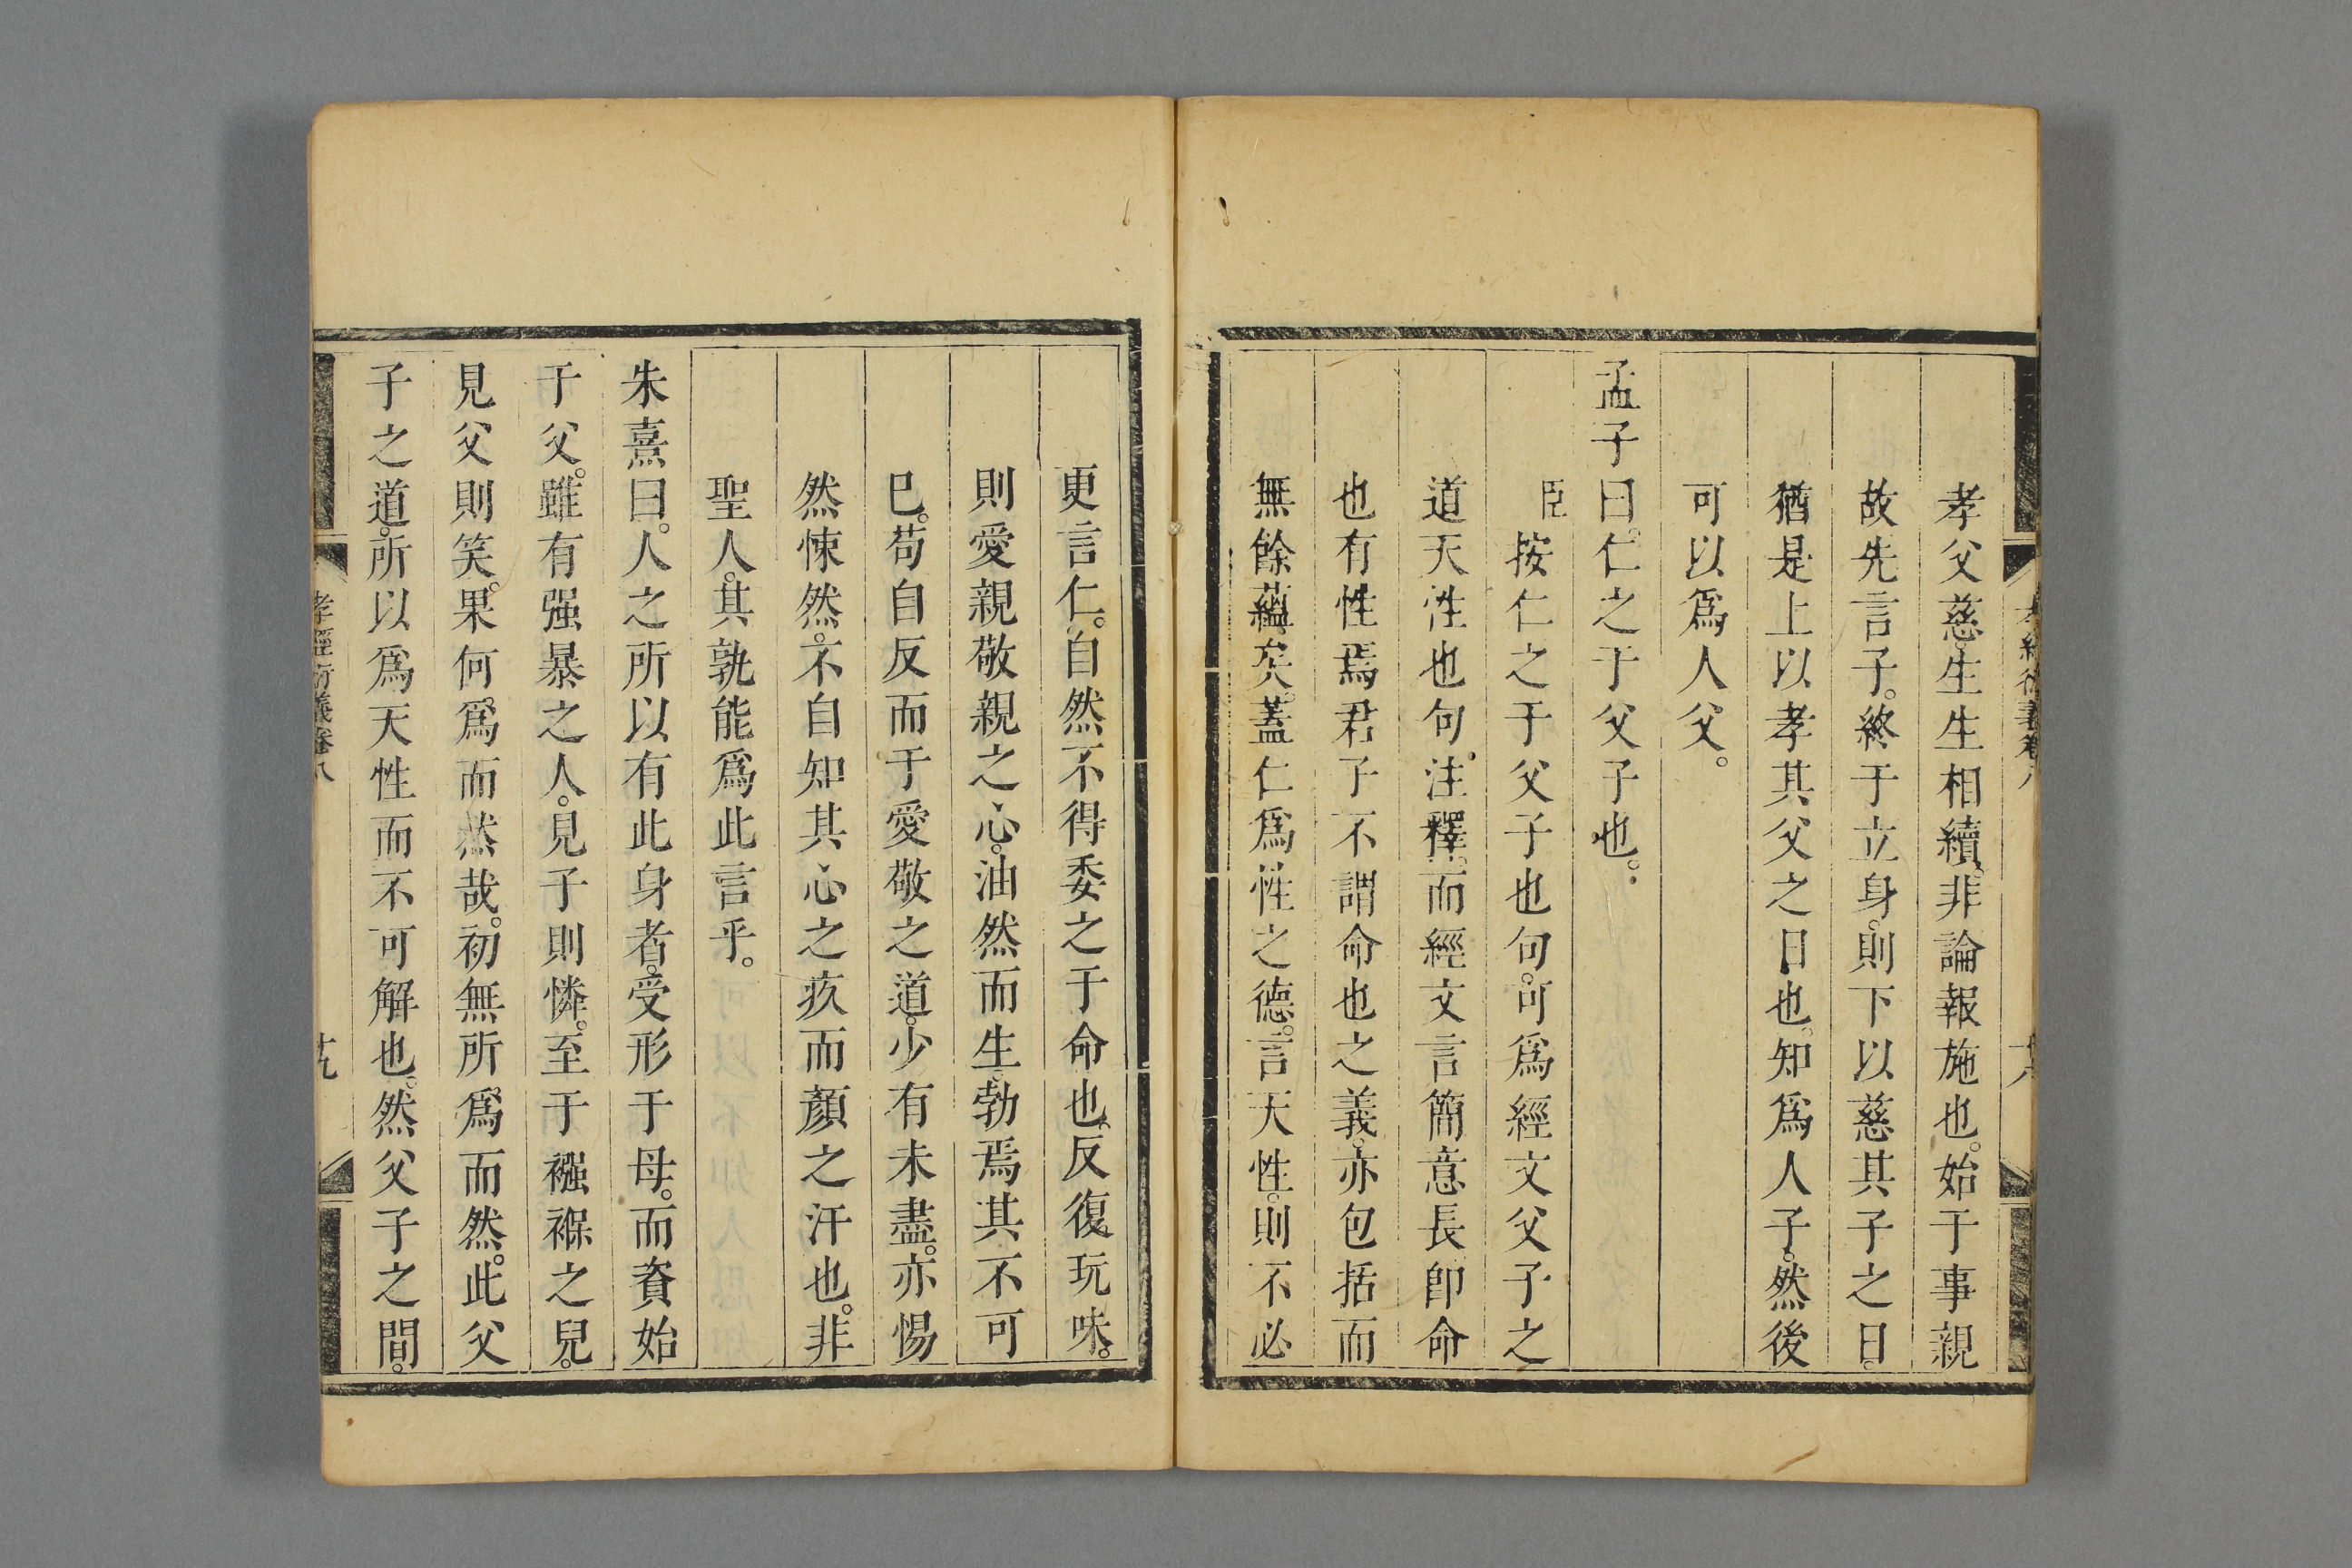 孝父慈。生生相續。非論報施也。始于事親
故先言子。終于立身。則下以慈其子之日。
猶是上以孝其父之日也。知爲人子。然後
可以爲人父。
孟子曰。仁之于父子也。
臣按仁之于父子也句。可爲經文父子之
道天性也句。注釋。而經文言簡意長卽命
也有性焉君子不謂命也之義。亦包括而
無餘蘊矣。蓋仁爲性之德。言天性。則不必
更言仁。自然不得委之于命也。反復玩味。
則愛親敬親之心。油然而生。勃焉其不可
已。苟自反而于愛敬之道。少有未盡。亦惕
然悚然。不自知其心之疚而顏之汗也。非
聖人。其孰能爲此言乎。
朱熹曰。人之所以有此身者。受形于母。而資始
于父。雖有强暴之人。見子則憐。至于襁褓之兒。
見父則笑。果何爲而然哉。初無所爲而然。此父
子之道。所以爲天性而不可解也。然父子之間。
孝經衍義卷八